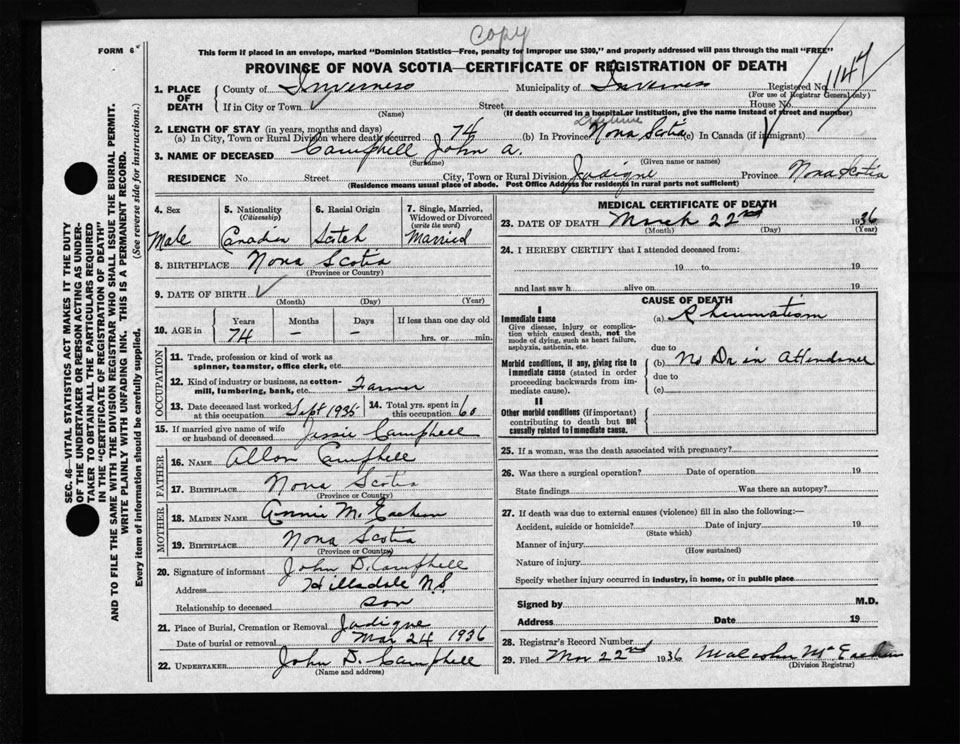 Copy
FORM 6
This form if placed in an envelope, marked "Dominion Statistics—Free, penalty for improper use $300," and properly addressed will pass through the mail "FREE"
PROVINCE OF NOVA SCOTIA—CERTIFICATE OF REGISTRATION OF DEATH
1. PLACE OF DEATH
County of Inverness Municipality of Inverness Registered No. 1147
(For use of Registrar General only)
If in City or Town ✓ Street House No.
(Name) (If death occurred in a hospital or institution, give the name instead of street and number)
2. LENGTH OF STAY (in years, months and days)
(a) In City, Town or Rural Division where death occurred 74 (b) In Province Lifetime Nova Scotia (c) In Canada (if immigrant)
3. NAME OF DECEASED Campbell John A.
(Surname) (Given name or names)
RESIDENCE No. Street City, Town or Rural Division Judique Province Nova Scotia
(Residence means usual place of abode. Post Office Address for residents in rural parts not sufficient)
4. Sex Male
5. Nationality (Citizenship) Canadian
6. Racial Origin Scotch
7. Single, Married, Widowed or Divorced (write the word) Married
8. BIRTHPLACE Nova Scotia
(Province or Country)
9. DATE OF BIRTH ✓
(Month) (Day) (Year)
10. AGE in Years Months Days If less than one day old
74 – – hrs. or min.
OCCUPATION
11. Trade, profession or kind of work as spinner, teamster, office clerk, etc.
12. Kind of industry or business, as cotton-mill, lumbering, bank, etc. Farmer
13. Date deceased last worked at this occupation Sept 1935
14. Total yrs. spent in this occupation 60
15. If married give name of wife or husband of deceased Jessie Campbell
FATHER
16. NAME Allan Campbell
17. BIRTHPLACE Nova Scotia
(Province or Country)
MOTHER
18. MAIDEN NAME Annie McEachern
19. BIRTHPLACE Nova Scotia
(Province or Country)
20. Signature of informant John D. Campbell
Address Hillsdale N.S.
Relationship to deceased son
21. Place of Burial, Cremation or Removal Judique
Date of burial or removal Mar 24 1936
22. UNDERTAKER John D. Campbell
(Name and address)
MEDICAL CERTIFICATE OF DEATH
23. DATE OF DEATH March 22nd 1936
(Month) (Day) (Year)
24. I HEREBY CERTIFY that I attended deceased from:
19 to 19
and last saw h alive on 19
CAUSE OF DEATH
I
Immediate cause
Give disease, injury or complication which caused death, not the mode of dying, such as heart failure, asphyxia, asthenia, etc.
(a) Rheumatism
due to
Morbid conditions, if any, giving rise to immediate cause (stated in order proceeding backwards from immediate cause).
(b) No Dr in Attendance
due to
(c)
II
Other morbid conditions (if important) contributing to death but not causally related to immediate cause.
25. If a woman, was the death associated with pregnancy?
26. Was there a surgical operation? Date of operation 19
State findings Was there an autopsy?
27. If death was due to external causes (violence) fill in also the following:—
Accident, suicide or homicide? Date of injury 19
(State which)
Manner of injury
(How sustained)
Nature of injury
Specify whether injury occurred in industry, in home, or in public place
Signed by M.D.
Address Date 19
28. Registrar's Record Number 1
29. Filed Mar 22nd 1936 Malcolm McEachern
(Division Registrar)
SEC. 46—VITAL STATISTICS ACT MAKES IT THE DUTY
OF THE UNDERTAKER OR PERSON ACTING AS UNDER-
TAKER TO OBTAIN ALL THE PARTICULARS REQUIRED
IN THE "CERTIFICATE OF REGISTRATION OF DEATH"
AND TO FILE THE SAME WITH THE DIVISION REGISTRAR WHO SHALL ISSUE THE BURIAL PERMIT.
WRITE PLAINLY WITH UNFADING INK. THIS IS A PERMANENT RECORD.
Every item of information should be carefully supplied. (See reverse side for instructions.)